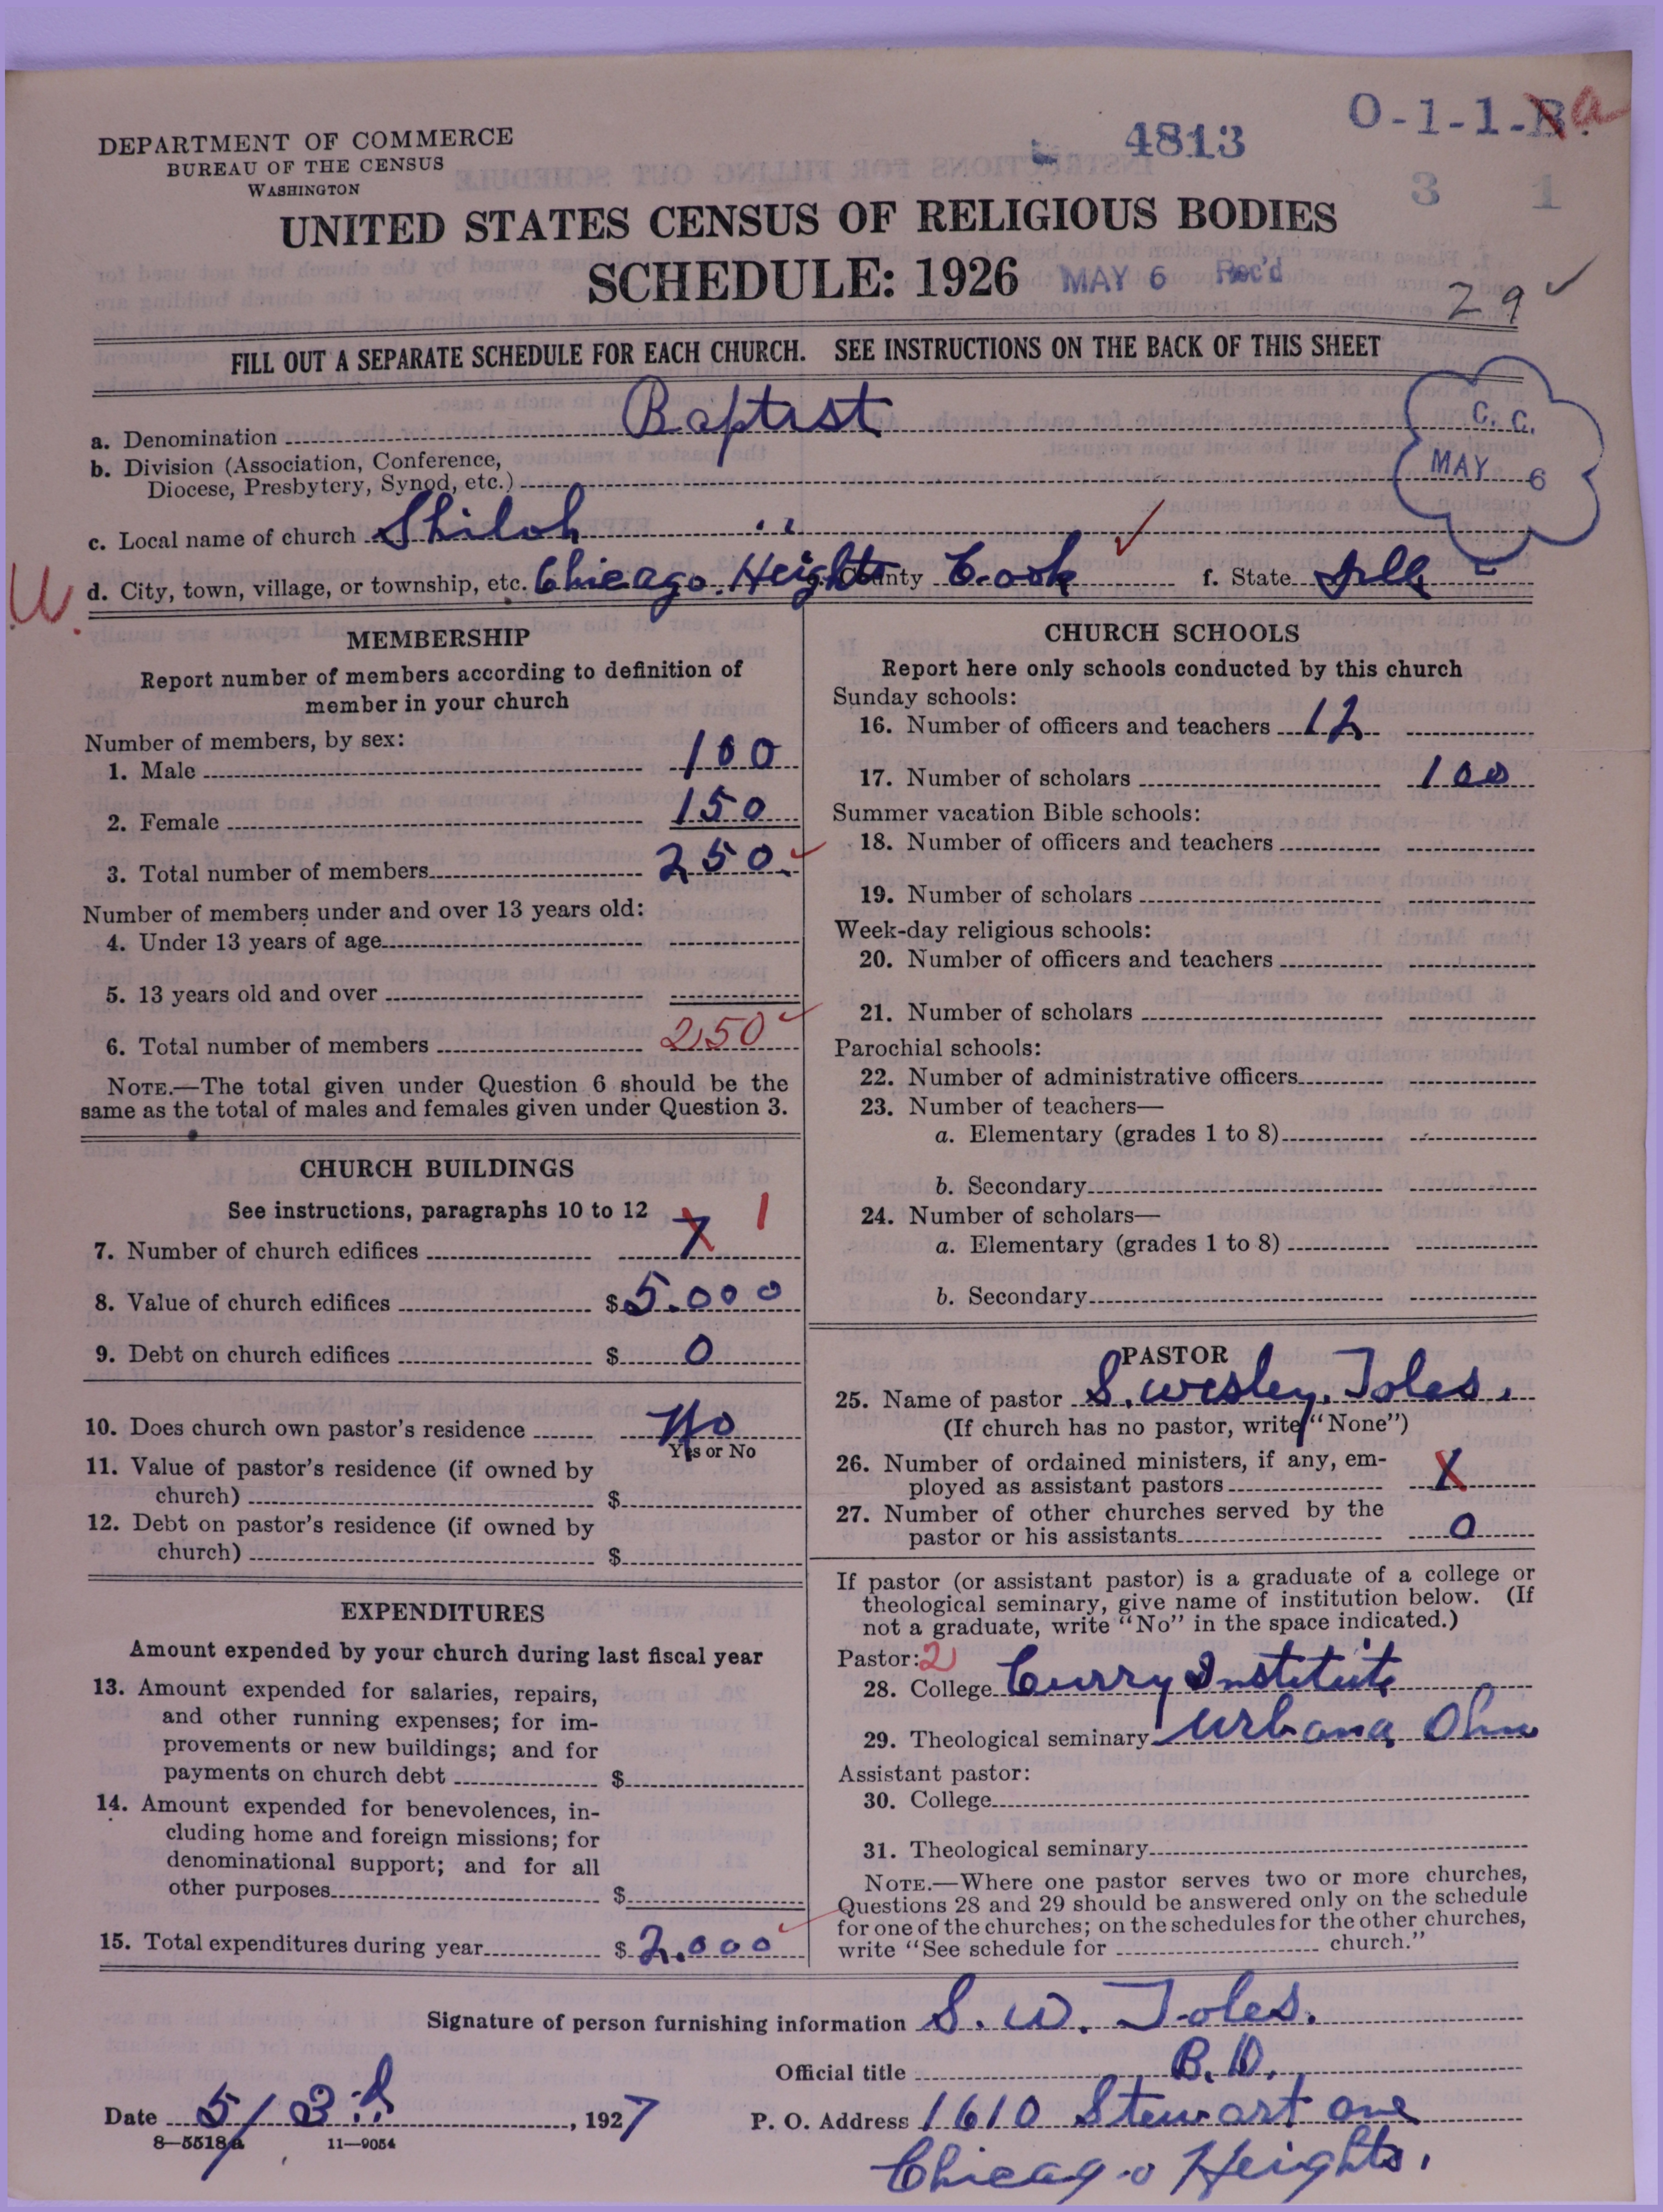 4813
O-1-1-B. a
3 1
DEPARTMENT OF COMMERCE
BUREAU OF THE CENSUS
WASHINGTON
UNITED STATES CENSUS OF RELIGIOUS BODIES
SCHEDULE: 1926 MAY 6 Rec'd
29 ✓
FILL OUT A SEPARATE SCHEDULE FOR EACH CHURCH. SEE INSTRUCTIONS ON THE BACK OF THIS SHEET
C. C.
MAY 6
a. Denomination Baptist
b. Division (Association, Conference,
Diocese, Presbytery, Synod, etc.)
c. Local name of church Shiloh " ✓
d. City, town, village, or township, etc. Chicago Heights County Cook f. State Ill
MEMBERSHIP
Report number of members according to definition of
member in your church
Number of members, by sex:
1. Male 100
2. Female 150
3. Total number of members 250 ✓
Number of members under and over 13 years old:
4. Under 13 years of age
5. 13 years old and over
6. Total number of members 250 ✓
NOTE.—The total given under Question 6 should be the
same as the total of males and females given under Question 3.
CHURCH BUILDINGS
See instructions, paragraphs 10 to 12
7. Number of church edifices X 1
8. Value of church edifices $ 5.000
9. Debt on church edifices $ 0
10. Does church own pastor's residence No
Yes or No
11. Value of pastor's residence (if owned by
church) $
12. Debt on pastor's residence (if owned by
church) $
EXPENDITURES
Amount expended by your church during last fiscal year
13. Amount expended for salaries, repairs,
and other running expenses; for im-
provements or new buildings; and for
payments on church debt $
14. Amount expended for benevolences, in-
cluding home and foreign missions; for
denominational support; and for all
other purposes $
15. Total expenditures during year $ 2.000 ✓
CHURCH SCHOOLS
Report here only schools conducted by this church
Sunday schools:
16. Number of officers and teachers 12
17. Number of scholars 100
Summer vacation Bible schools:
18. Number of officers and teachers
19. Number of scholars
Week-day religious schools:
20. Number of officers and teachers
21. Number of scholars
Parochial schools:
22. Number of administrative officers
23. Number of teachers—
a. Elementary (grades 1 to 8)
b. Secondary
24. Number of scholars—
a. Elementary (grades 1 to 8)
b. Secondary
PASTOR
25. Name of pastor S. Wesley. Toles.
(If church has no pastor, write "None")
26. Number of ordained ministers, if any, em-
ployed as assistant pastors X
27. Number of other churches served by the
pastor or his assistants 0
If pastor (or assistant pastor) is a graduate of a college or
theological seminary, give name of institution below. (If
not a graduate, write "No" in the space indicated.)
Pastor: 2
28. College Curry Institute
29. Theological seminary Urbana Ohio
Assistant pastor:
30. College
31. Theological seminary
NOTE.—Where one pastor serves two or more churches,
Questions 28 and 29 should be answered only on the schedule
for one of the churches; on the schedules for the other churches,
write "See schedule for church."
Signature of person furnishing information S. W. Toles.
Official title B. D.
Date 5/3rd, 1927 P. O. Address 1610 Stewart ave
8—5518a 11—9054
Chicago Heights.